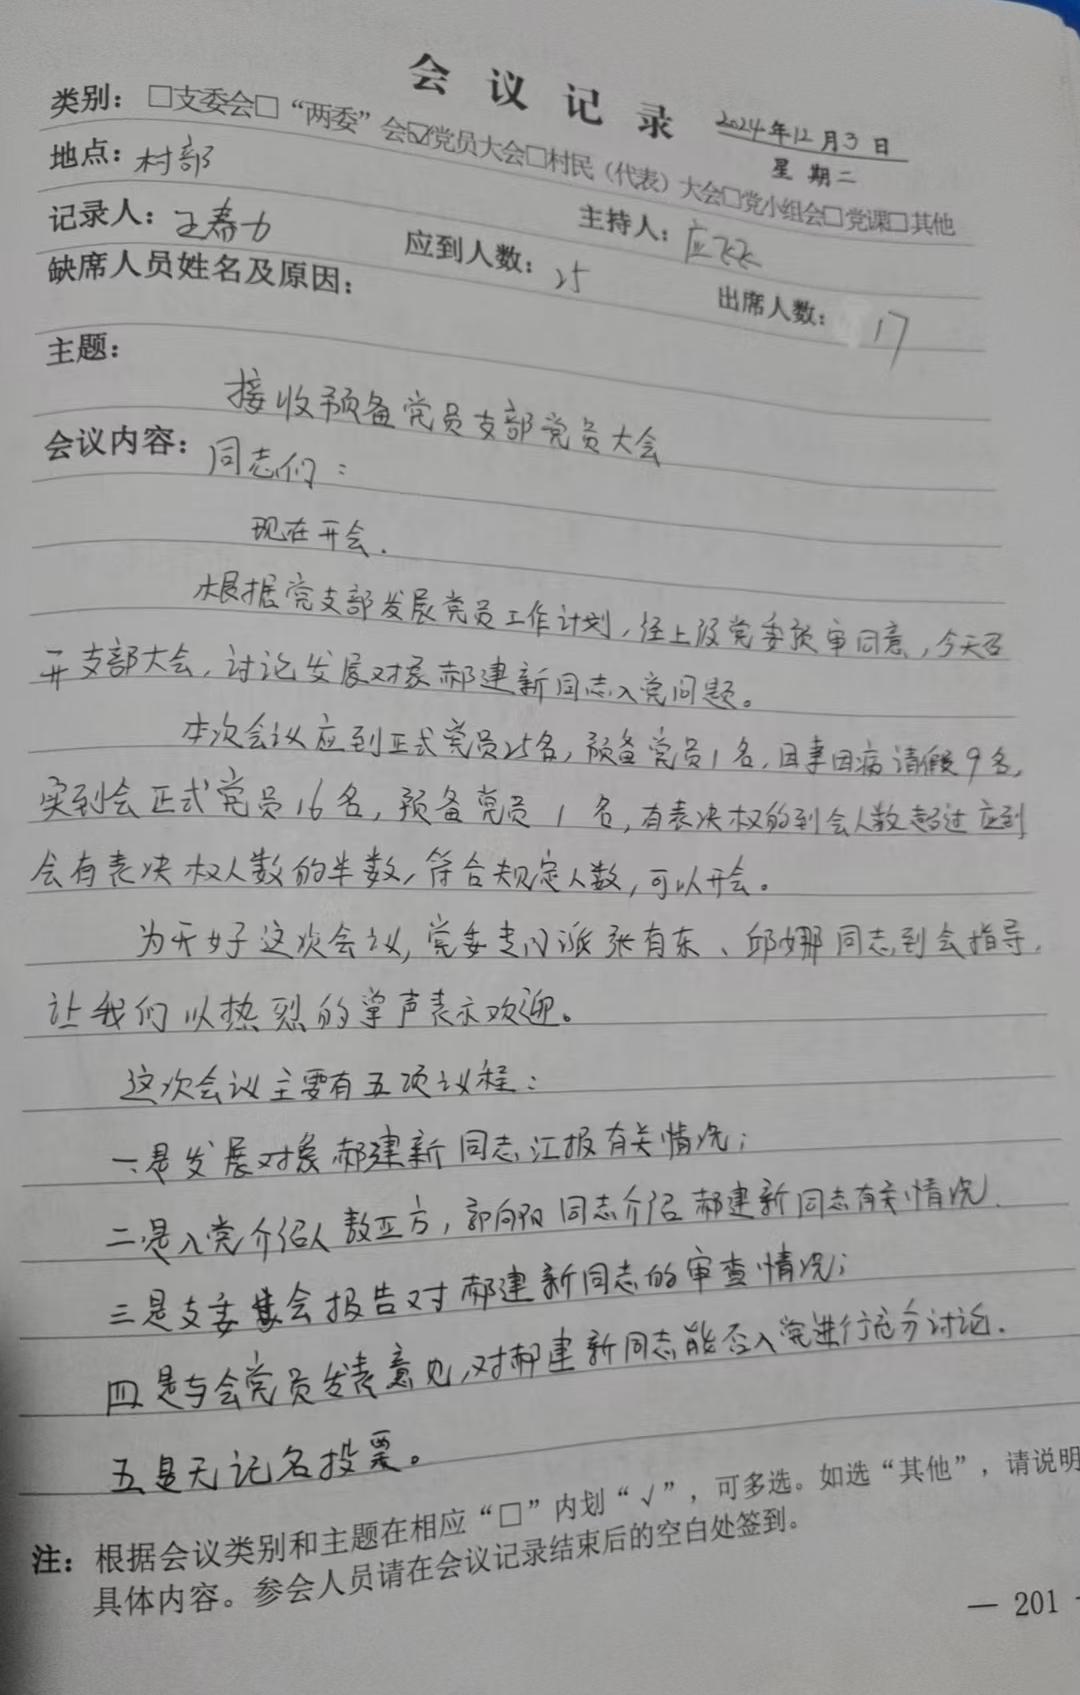 会 议 记 录
2024年12月3日
星期二
类别：□支委会□“两委”会☑党员大会□村民（代表）大会□党小组会□党课□其他
地点：村部
主持人：应
记录人：王寿力
应到人数：25
出席人数：17
缺席人员姓名及原因：
主题：
接收预备党员支部党员大会
会议内容：同志们：
现在开会.
根据党支部发展党员工作计划，经上级党委预审同意，今天召
开支部大会，讨论发展对象郝建新同志入党问题。
本次会议应到正式党员25名，预备党员1名，因事因病请假9名，
实到会正式党员16名，预备党员1名，有表决权的到会人数超过应到
会有表决权人数的半数，符合规定人数，可以开会。
为开好这次会议，党委专门派张有东、邱娜同志到会指导，
让我们以热烈的掌声表示欢迎。
这次会议主要有五项议程：
一是发展对象郝建新同志汇报有关情况；
二是入党介绍人敖正方，郭向阳同志介绍郝建新同志有关情况.
三是支委会报告对郝建新同志的审查情况；
四是与会党员发表意见，对郝建新同志能否入党进行充分讨论.
五是无记名投票。
注：根据会议类别和主题在相应“□”内划“√”，可多选。如选“其他”，请说明
具体内容。参会人员请在会议记录结束后的空白处签到。
— 201